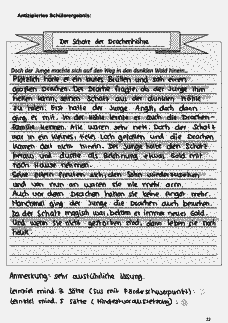 Antizipiertes Schülerergebnis:
Der Schatz der Drachenhöhle
Doch der Junge machte sich auf den Weg in den dunklen Wald hinein...
Plötzlich hörte er ein lautes Brüllen und sah einen
großen Drachen. Der Drache fragte, ob der Junge ihm
helfen kann, seinen Schatz aus der dunklen Höhle
zu holen. Erst hatte der Junge Angst, doch dann
ging er mit. In der Höhle lernte er auch die Drachen-
familie kennen. Alle waren sehr nett. Doch der Schatz
war in ein kleines, tiefes Loch gefallen und die Drachen
kamen dort nicht hinein. Der Junge holte den Schatz
heraus und durfte als Belohnung etwas Gold mit
nach Hause nehmen.
Seine Eltern freuten sich, den Sohn wiederzusehen
und von nun an waren sie nie mehr arm.
Auch vor dem Drachen hatten sie keine Angst mehr.
Manchmal ging der Junge die Drachen auch besuchen.
Da der Schatz magisch war, bekam er immer neues Gold.
Und wenn sie nicht gestorben sind, dann leben sie noch
heute.
Anmerkung: sehr ausführliche Lösung.
Lernziel mind. 3 Sätze (SuS mit Förderschwerpunkt)
Lernziel mind. 5 Sätze (Mindestvoraussetzung)